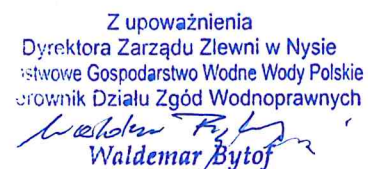 Z upoważnienia
Dyrektora Zarządu Zlewni w Nysie
stwowe Gospodarstwo Wodne Wody Polskie
erownik Działu Zgód Wodnoprawnych
Waldemar Bytof